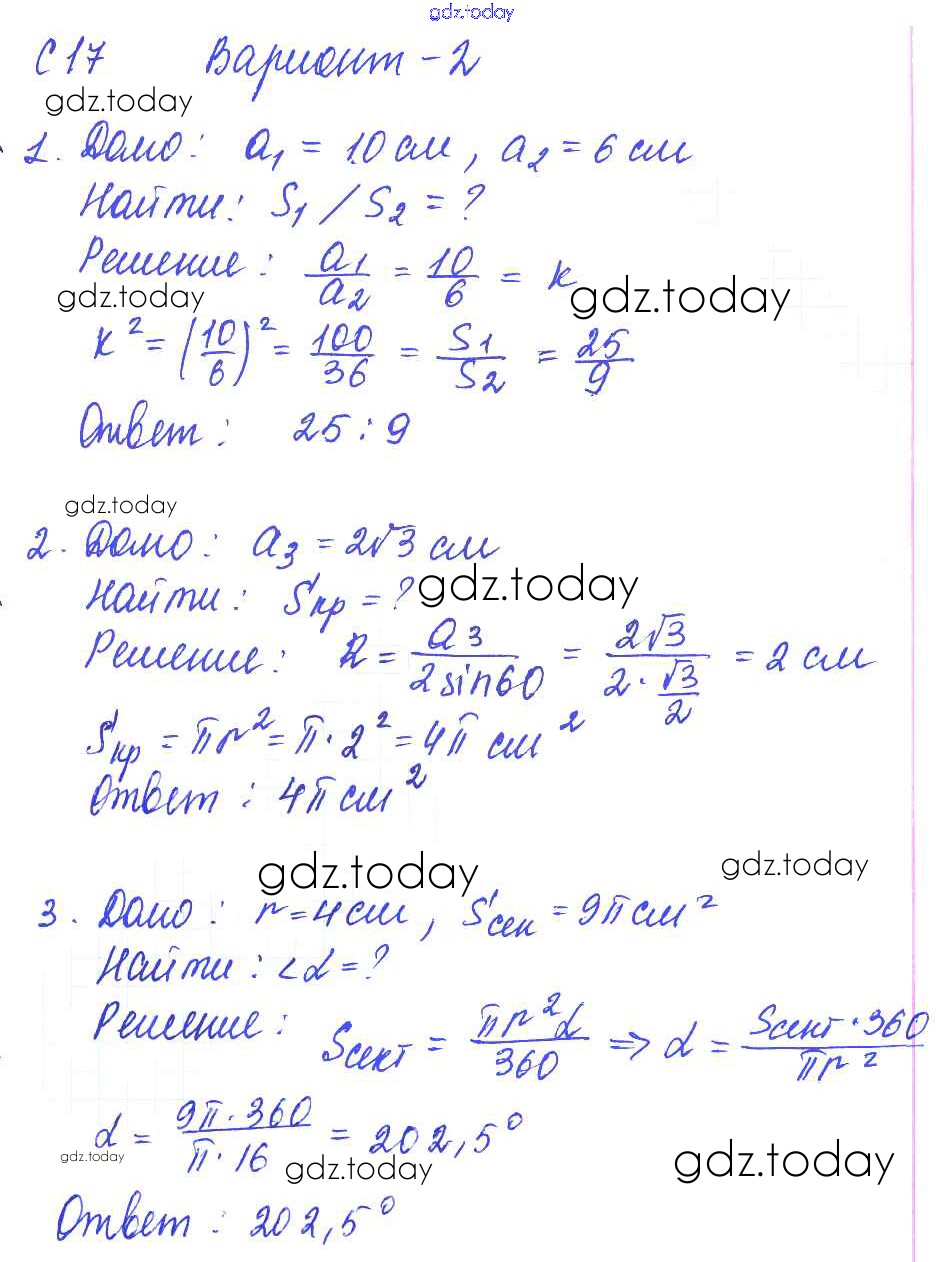 gdz.today
С 17 Вариант - 2
gdz.today
1. Дано: a₁ = 10 см, a₂ = 6 см
Найти: S₁ / S₂ = ?
Решение: a₁/a₂ = 10/6 = k
gdz.today gdz.today
k² = (10/6)² = 100/36 = S₁/S₂ = 25/9
Ответ: 25 : 9
gdz.today
2. Дано: a₃ = 2√3 см
Найти: Sкр = ? gdz.today
Решение: R = a₃/(2 sin 60) = 2√3/(2 · √3/2) = 2 см
Sкр = πr² = π · 2² = 4π см²
Ответ: 4π см²
gdz.today gdz.today
3. Дано: r = 4 см, Sсек = 9π см²
Найти: ∠α = ?
Решение: Sсект = πr²α/360 => α = Sсект · 360/πr²
α = 9π · 360/π · 16 = 202,5°
gdz.today gdz.today gdz.today
Ответ: 202,5°